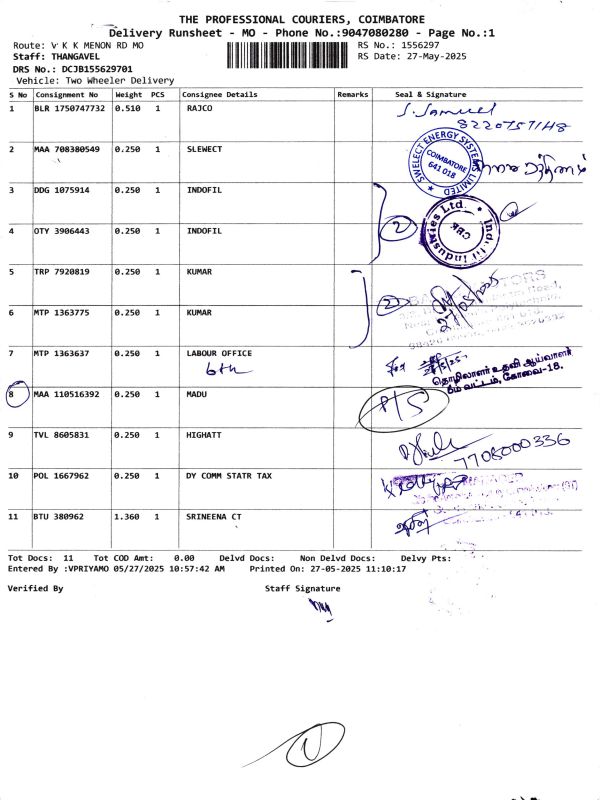 THE PROFESSIONAL COURIERS, COIMBATORE
Delivery Runsheet - MO - Phone No.:9047080280 - Page No.:1
Route: V K K MENON RD MO
RS No.: 1556297
Staff: THANGAVEL
RS Date: 27-May-2025
DRS No.: DCJB155629701
Vehicle: Two Wheeler Delivery
S No Consignment No Weight PCS Consignee Details Remarks Seal & Signature
1 BLR 1750747732 0.510 1 RAJCO S. Samuel
8220757148
2 MAA 708380549 0.250 1 SLEWECT
SWELECT ENERGY SYSTEMS LIMITED
COIMBATORE
641 018
3 DDG 1075914 0.250 1 INDOFIL
2
Indofil Industries Ltd.
CBE
4 OTY 3906443 0.250 1 INDOFIL
5 TRP 7920819 0.250 1 KUMAR
2
6 MTP 1363775 0.250 1 KUMAR
7 MTP 1363637 0.250 1 LABOUR OFFICE
6th
தொழிலாளர் உதவி ஆய்வாளர்
வட்டம், கோவை-18.
8 MAA 110516392 0.250 1 MADU P/S
9 TVL 8605831 0.250 1 HIGHATT
7708000336
10 POL 1667962 0.250 1 DY COMM STATR TAX
11 BTU 380962 1.360 1 SRINEENA CT
Tot Docs: 11 Tot COD Amt: 0.00 Delvd Docs: Non Delvd Docs: Delvy Pts:
Entered By :VPRIYAMO 05/27/2025 10:57:42 AM Printed On: 27-05-2025 11:10:17
Verified By Staff Signature